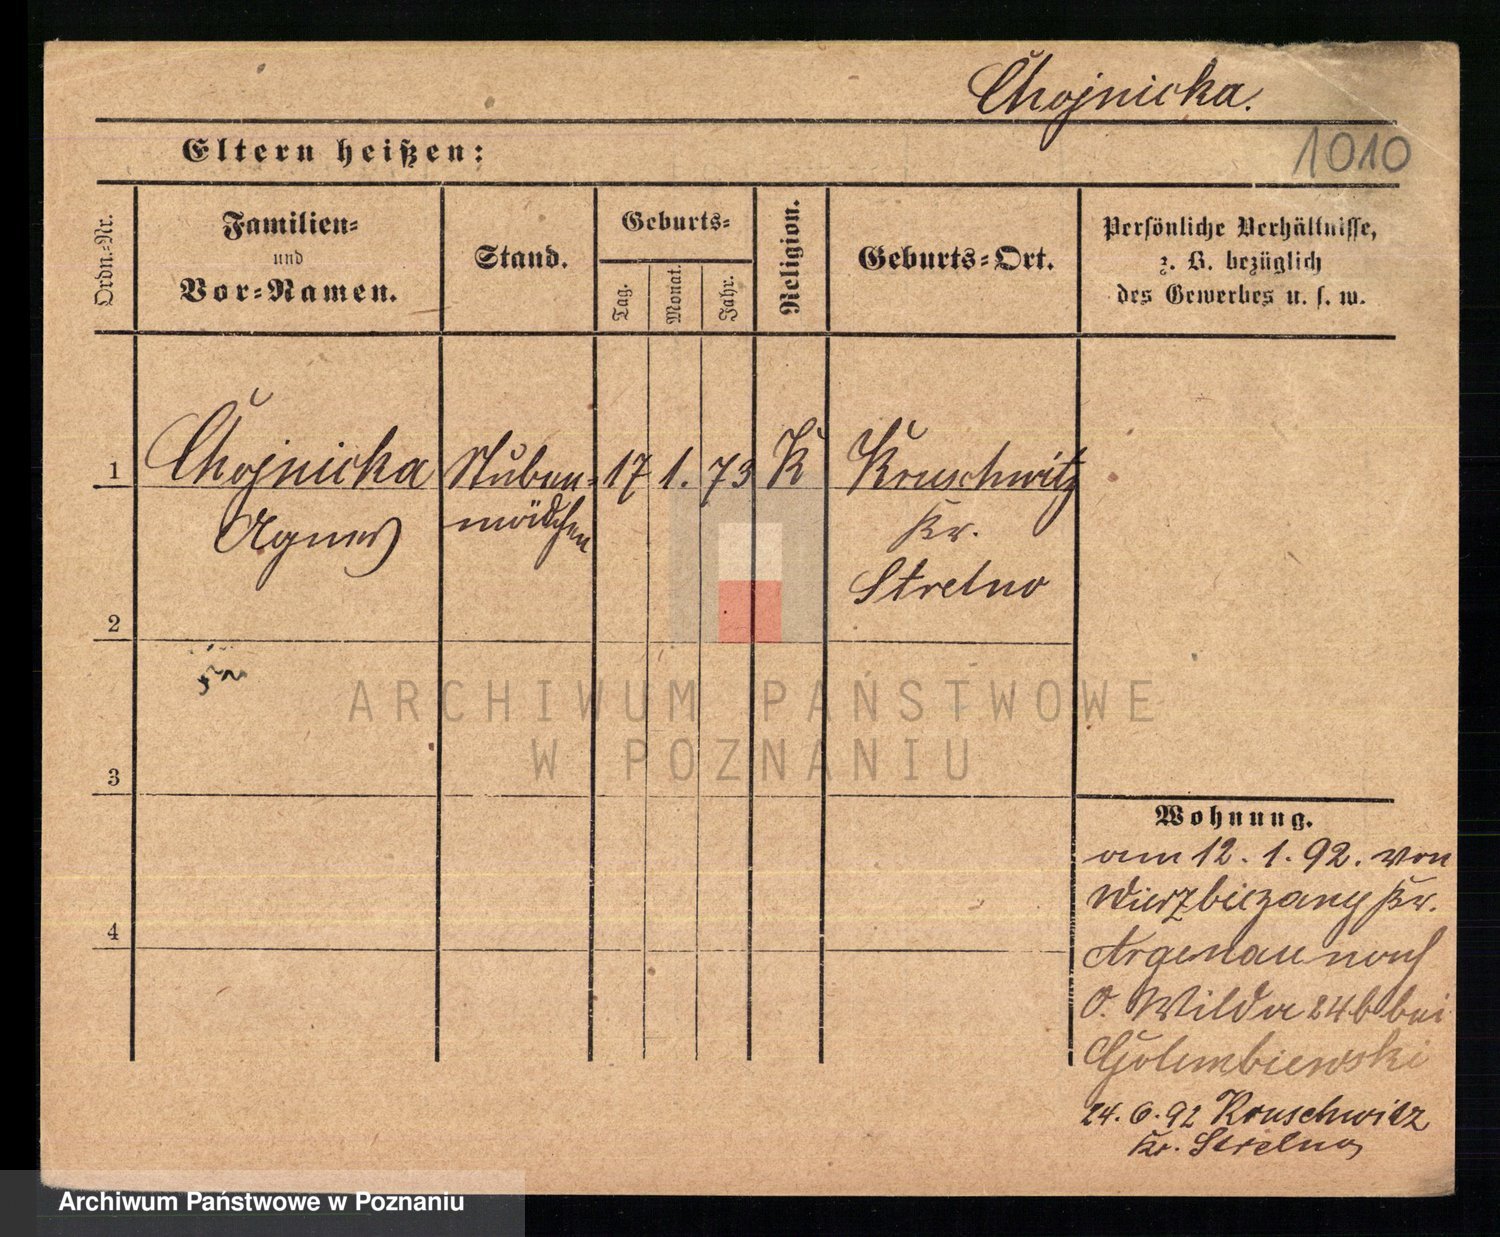 Chojnicka.
1010
Eltern heißen:
Ordn.-Nr.
Familien-
und
Vor-Namen.
Stand.
Geburts-
Tag.
Monat.
Jahr.
Religion.
Geburts-Ort.
Persönliche Verhältnisse,
z. B. bezüglich
des Gewerbes u. s. w.
1 Chojnicka Stuben- 17 1. 73 K Kruschwitz
Agnes mädchen Kr.
Strelno
2
3
4
ARCHIWUM PAŃSTWOWE
W POZNANIU
Wohnung.
am 12. 1. 92. von
Wierzbiczany Kr.
Argenau nach
O. Wilda 24b bei
Golembiewski
24. 6. 92 Kruschwitz
Kr. Strelno
Archiwum Państwowe w Poznaniu